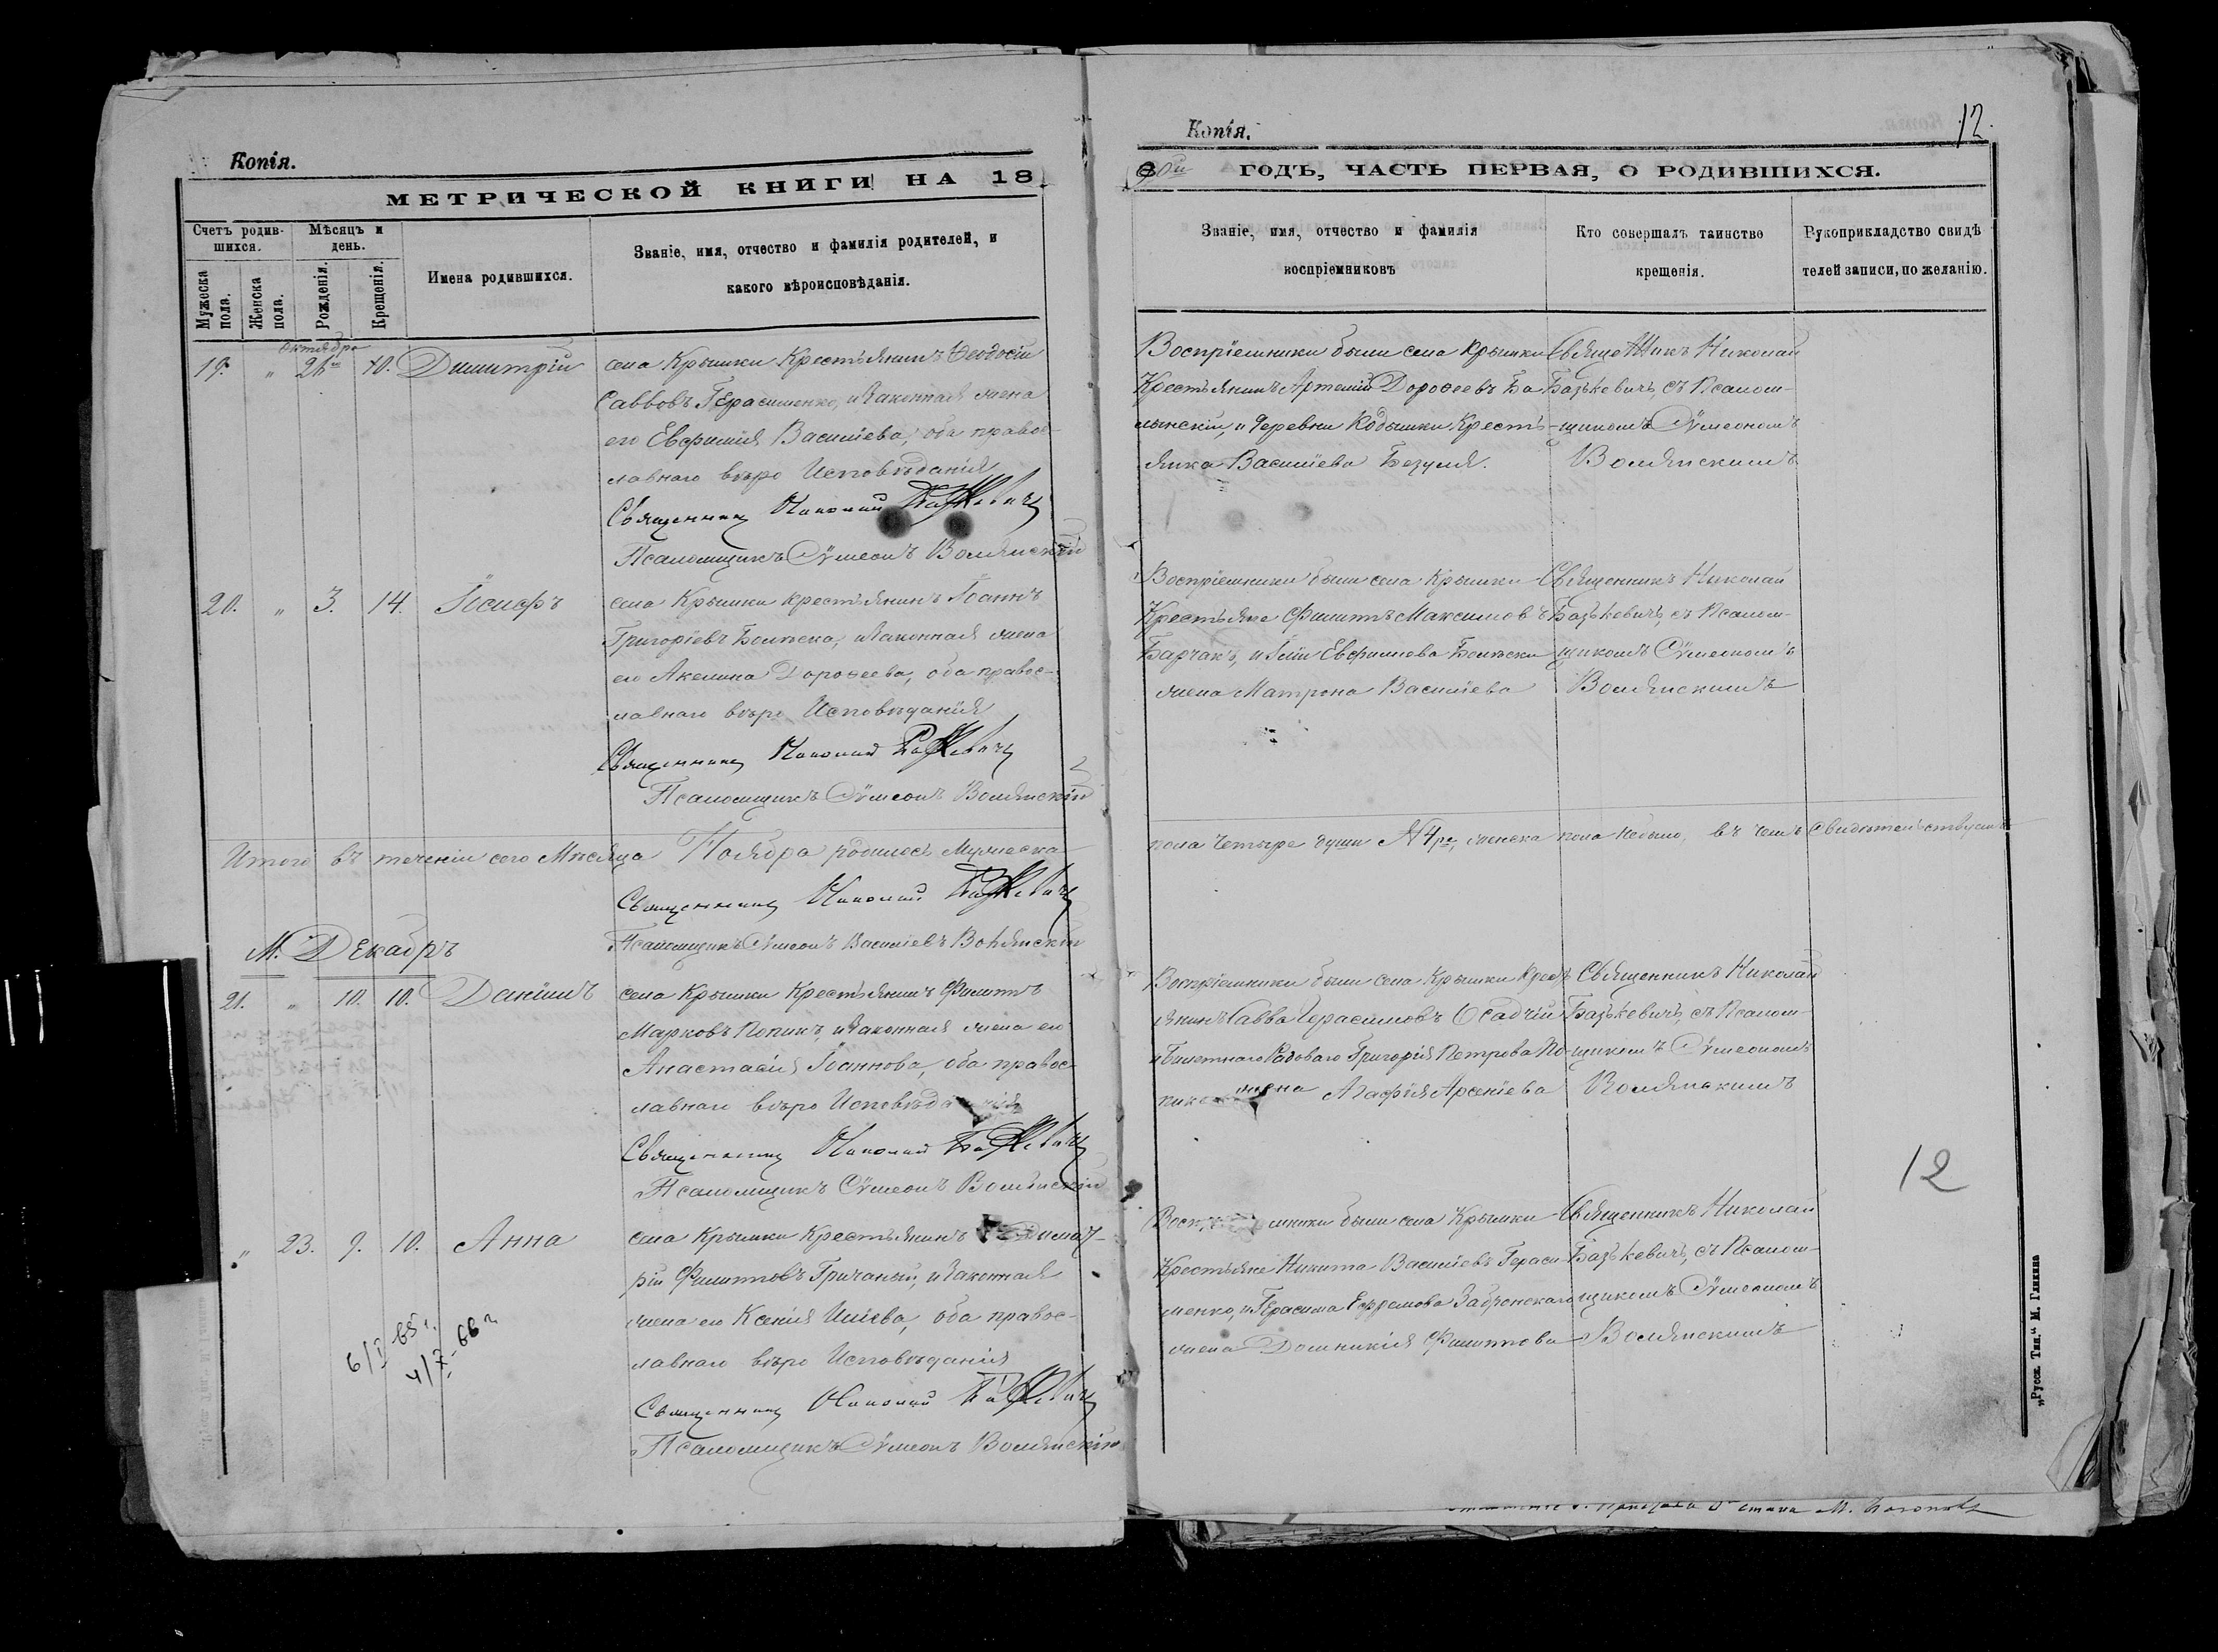 Копія.
МЕТРИЧЕСКОЙ КНИГИ НА 18
Счетъ родившихся.
Мѣсяцъ и день.
Мужеска пола.
Женска пола.
Рожденія.
Крещенія.
Имена родившихся.
Званіе, имя, отчество и фамилія родителей, и
какого вѣроисповѣданія.
Октября
19. " 10. Димитрій
села Крымки Крестьянинъ Ѳеодосій
Саввовъ Герасименко, и законная жена
его Евфимія Василіева, оба правос-
лавнаго вѣро Исповѣданія
Священникъ Николай Базькевичъ
Псаломщикъ Сѵмеонъ Волянскій
20. " 3. 14. Іосифъ
села Крымки крестьянинъ Іоаннъ
Григоріевъ, и законная жена
его Акелина Дороѳеева, оба правос-
лавнаго вѣро Исповѣданія
Священникъ Николай Базькевичъ
Псаломщикъ Сѵмеонъ Волянскій
Итого въ теченіи сего Мѣсяца Ноября родилось Мужеска
Священникъ Николай Базькевичъ
Псаломщикъ Сѵмеонъ Василіевъ Волянскій
М. Декабръ
21. " 10. 10. Даніилъ
села Крымки Крестьянинъ Филиппъ
Марковъ Попикъ, и законная жена его
Анастасія Іоаннова, оба правос-
лавнаго вѣро Исповѣданія
Священникъ Николай Базькевичъ
Псаломщикъ Сѵмеонъ Волянскій
" 23. 9. 10. Анна
села Крымки Крестьянинъ Димит-
рій Филипповъ Гричаный, и законная
жена его Ксенія Иліева, оба правос-
лавнаго вѣро Исповѣданія
Священникъ Николай Базькевичъ
Псаломщикъ Сѵмеонъ Волянскій
Копія.
12.
90й ГОДЪ, ЧАСТЬ ПЕРВАЯ, О РОДИВШИХСЯ.
Званіе, имя, отчество и фамилія
воспріемниковъ
Кто совершалъ таинство
крещенія.
Рукоприкладство свидѣ
телей записи, по желанію.
Воспріемники были села Крымки
Крестьянинъ Артемій Дороѳеевъ Ба
и деревни Кодымки Кресть-
янка Василіева
Николай
Базькевичъ, съ Псалом-
щикомъ Сѵмеономъ
Волянскимъ
Воспріемники были села Крымки
Крестьяне Филиппъ Максимовъ
Барчакъ, и Евфимиева
жена Матрона Василіева
Священникъ Николай
Базькевичъ, съ Псалом-
щикомъ Сѵмеономъ
Волянскимъ
пола четыре души № 4ре, женска пола небыло, въ чемъ свидѣтельствуемъ
Воспріемники были села Крымки Крест
янинъ Савва Герасимовъ Осадчій
и Билетнаго Рядоваго Григорія Петрова По-
жена Агафія Арсеніева
Священникъ Николай
Базькевичъ, съ Псалом-
щикомъ Сѵмеономъ
Волянскимъ
12
были села Крымки
Крестьяне Никита Василіевъ Гераси
менко, и Герасима Ефремова
жена Домникія Филиппова
Священникъ Николай
Базькевичъ, съ Псалом-
щикомъ Сѵмеономъ
Волянскимъ
„Русск. Тип." М.